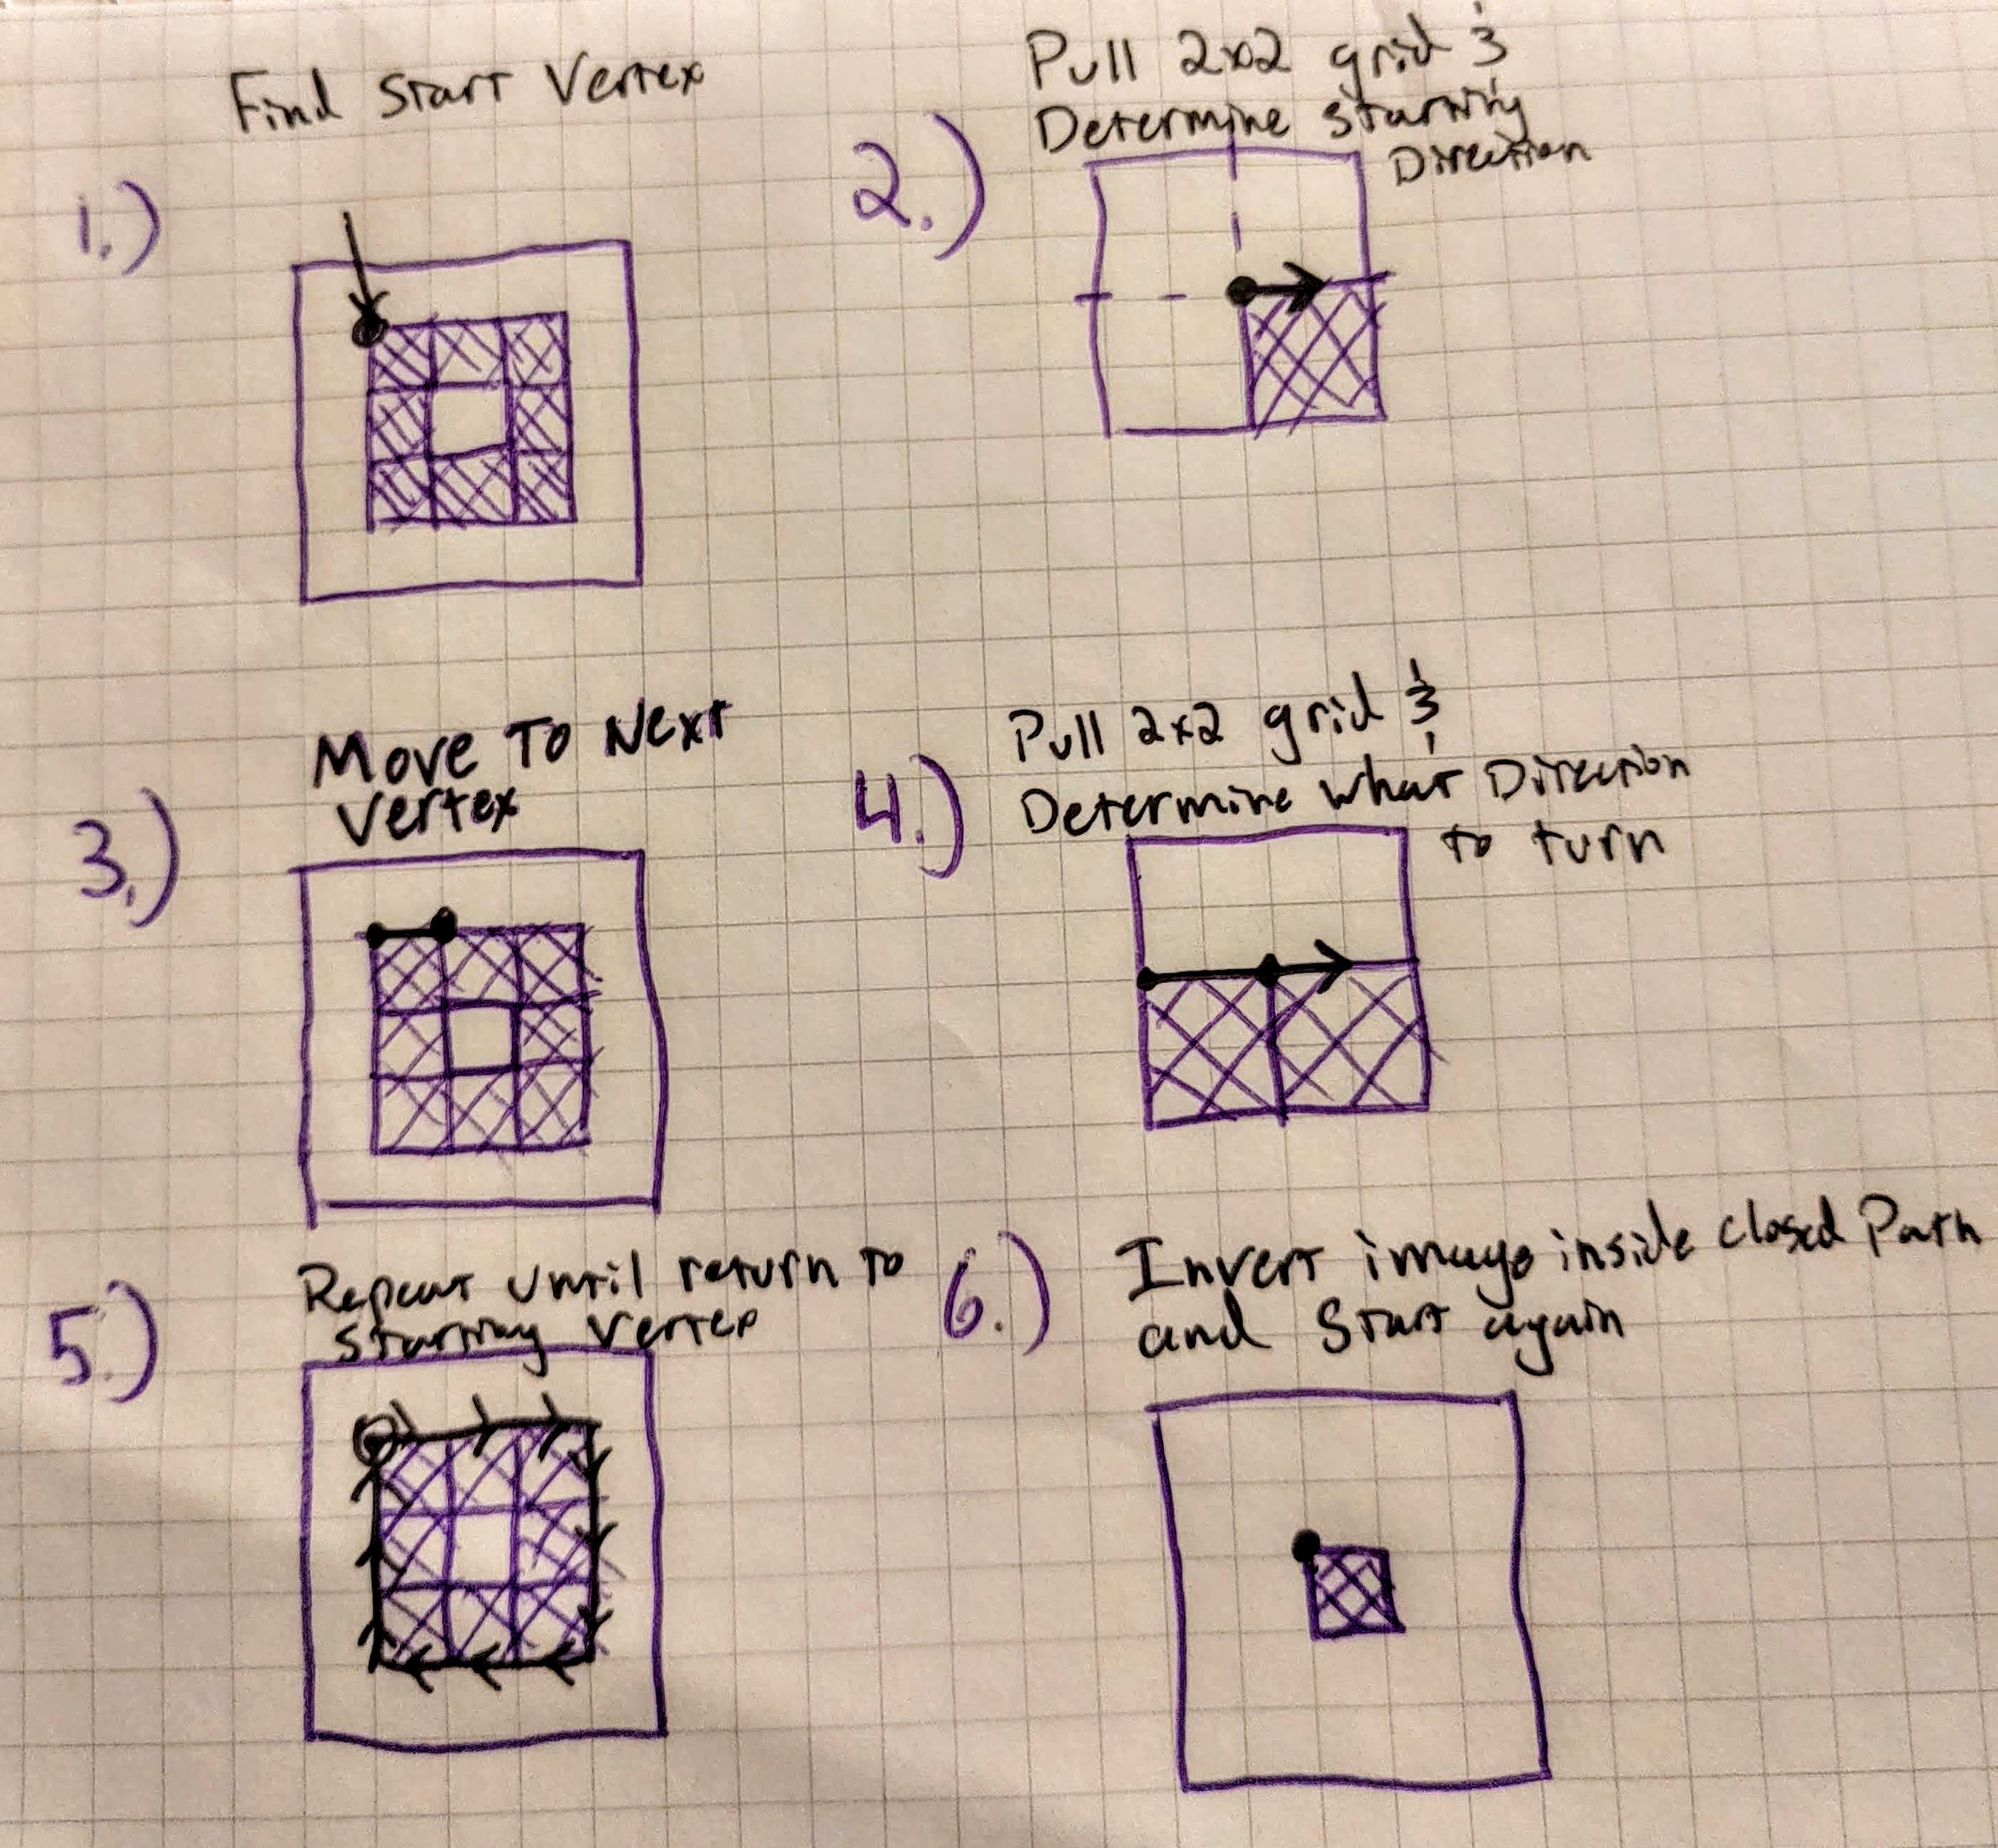 Find Start Vertex
1.)
Pull 2x2 grid &
Determine Starting
Direction
2.)
Move To Next
Vertex
3.)
Pull 2x2 grid &
Determine what Direction
to turn
4.)
Repeat until return to
Starting Vertex
5.)
Invert image inside closed Path
and Start again
6.)